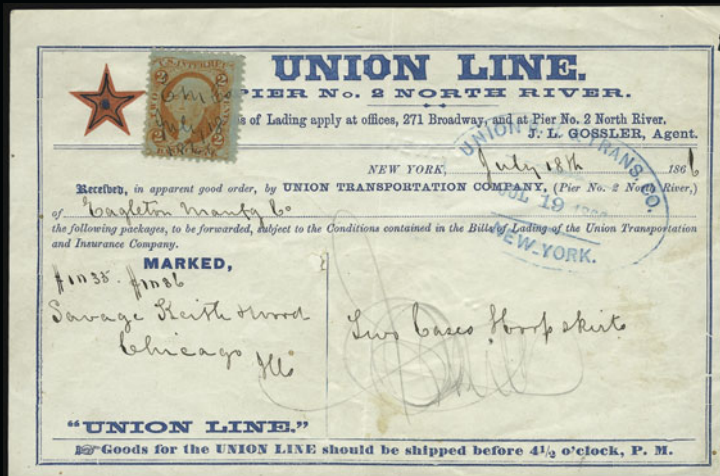 UNION LINE.
PIER No. 2 NORTH RIVER.
s of Lading apply at offices, 271 Broadway, and at Pier No. 2 North River.
J. L. GOSSLER, Agent.
NEW YORK, July 18th 1866
UNION TRANS. CO.
JUL 19
NEW-YORK.
Received, in apparent good order, by UNION TRANSPORTATION COMPANY, (Pier No. 2 North River,)
of Eagleton Manfg Co
the following packages, to be forwarded, subject to the Conditions contained in the Bills of Lading of the Union Transportation
and Insurance Company.
MARKED,
Savage Keith & Wood
Chicago
Ills
Two Cases Hoop skirts
"UNION LINE."
Goods for the UNION LINE should be shipped before 4½ o'clock, P. M.